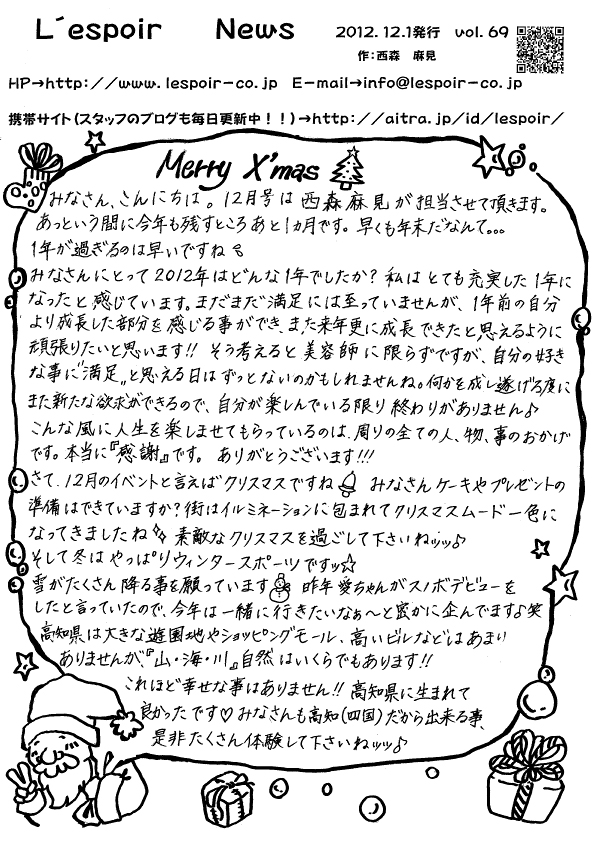 L´espoir News 2012.12.1発行 vol.69
作:西森 麻見
HP→http://www.lespoir-co.jp E-mail→info@lespoir-co.jp
携帯サイト(スタッフのブログも毎日更新中!!)→http://aitra.jp/id/lespoir/
Merry X'mas
みなさん、こんにちは。12月号は西森麻見が担当させて頂きます。
あっという間に今年も残すところあと1ヵ月です。早くも年末だなんて。。。
1年が過ぎるのは早いですね
みなさんにとって2012年はどんな1年でしたか?私はとても充実した1年に
なったと感じています。まだまだ満足には至っていませんが、1年前の自分
より成長した部分を感じる事ができ、また来年更に成長できたと思えるように
頑張りたいと思います!!そう考えると美容師に限らずですが、自分の好き
な事に"満足"と思える日はずっとないのかもしれませんね。何かを成し遂げる度に
また新たな欲求ができるので、自分が楽しんでいる限り終わりがありません♪
こんな風に人生を楽しませてもらっているのは、周りの全ての人、物、事のおかげ
です。本当に『感謝』です。ありがとうございます!!!
さて、12月のイベントと言えばクリスマスですね みなさんケーキやプレゼントの
準備はできていますか?街はイルミネーションに包まれてクリスマスムード一色に
なってきましたね 素敵なクリスマスを過ごして下さいねッッ♪
そして冬はやっぱりウィンタースポーツですッ☆
雪がたくさん降る事を願っています 昨年愛ちゃんがスノボデビューを
したと言っていたので、今年は一緒に行きたいなぁ〜と密かに企んでます♪笑
高知県は大きな遊園地やショッピングモール、高いビルなどはあまり
ありませんが、『山・海・川』自然はいくらでもあります!!
これほど幸せな事はありません!!高知県に生まれて
良かったです♡みなさんも高知(四国)だから出来る事、
是非たくさん体験して下さいねッッ♪